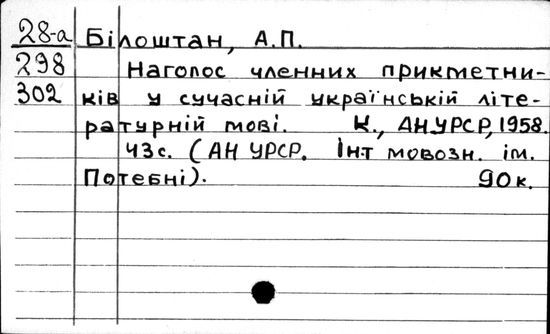 28-а Білоштан, А.П.
298 Наголос членних прикметни-
302 ків у сучасній українській літе-
ратурній мові. К., АН УРСР, 1958.
43с. (АН УРСР. Інт мовозн. ім.
Потебні). 90к.